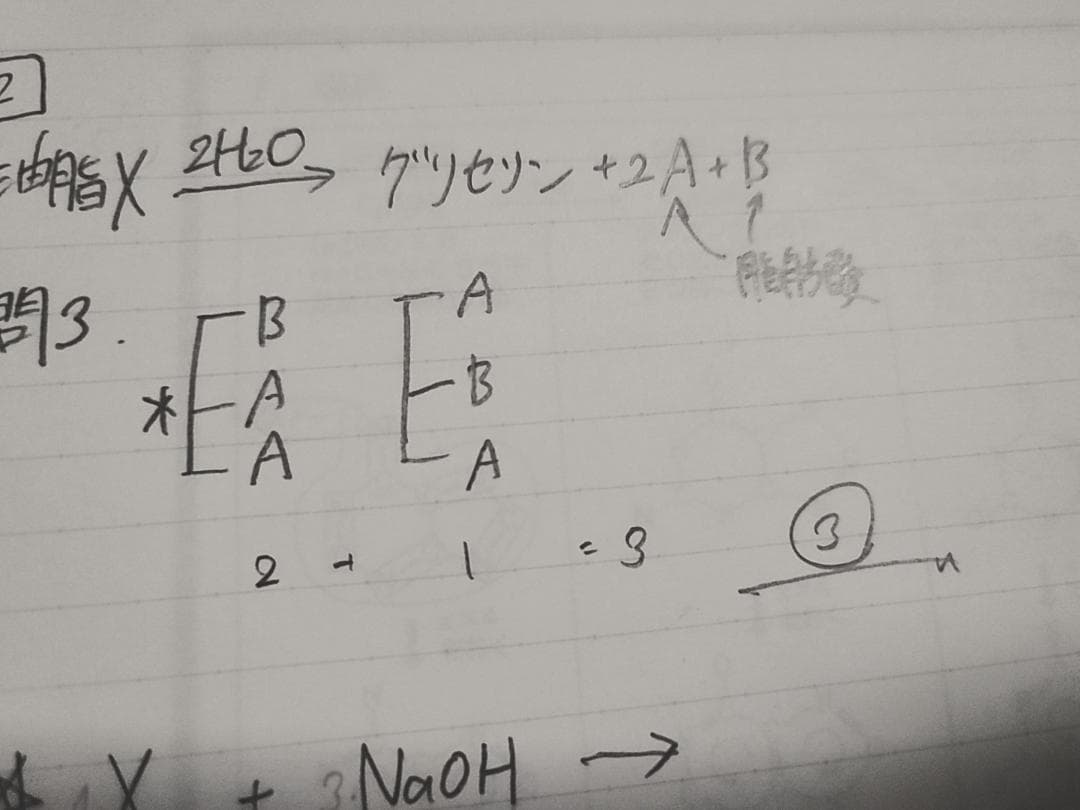 2
油脂X 2H₂O → グリセリン + 2A + B
脂肪酸
問3.
* B A
A B
A A
2 + 1 = 3 ③
X + 3 NaOH →